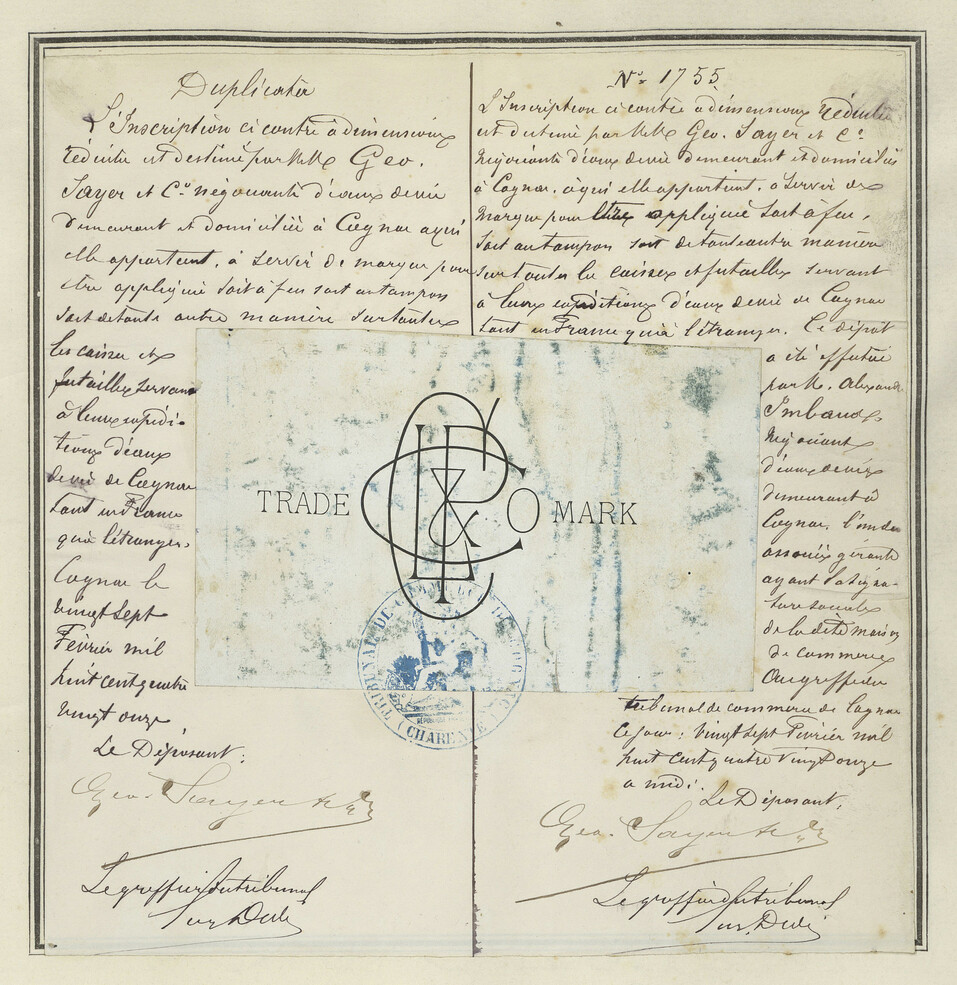 Duplicata
L'Inscription ci contre à dimensions
réduite est destiné par MM Geo.
Sayer et Co négociants d'eaux de vie
demeurant et domiciliés à Cognac à qui
elle appartient, à servir de marque pour
être appliqué soit à feu soit au tampon
soit de toute autre manière sur toutes
les caisses et
futailles servant
à leurs expédi-
tions d'eaux
de vie de Cognac
tant en France
qu'à l'étranger.
Cognac le
vingt sept
Février mil
huit cent quatre
vingt onze
Le Déposant:
Geo. Sayer & Co
Le greffier du tribunal
No 1755
L'Inscription ci contre à dimensions réduite
est destiné par MM Geo. Sayer et Co
Négociants d'eaux de vie demeurant et domiciliés
à Cognac, à qui elle appartient, à servir de
marque pour être appliqué soit à feu,
soit au tampon soit de toute autre manière
sur toutes les caisses et futailles servant
à leurs expéditions d'eaux de vie de Cognac
tant en France qu'à l'étranger. Ce dépôt
a été effectué
par M. Alexandre
Imbaud,
Négociant
d'eaux de vie
demeurant à
Cognac, l'un des
associés gérants
ayant la signa-
ture sociale
de la dite maison
de commerce
Au greffe du
tribunal de commerce de Cognac
Ce jour: vingt sept Février mil
huit cent quatre vingt onze
à midi.
Le Déposant,
Geo. Sayer & Co
Le greffier du tribunal
TRADE & CO MARK
TRIBUNAL DE COMMERCE DE COGNAC
(CHARENTE)